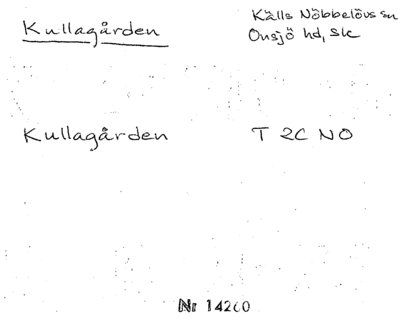 Kullagården
Källs Nöbbelövs sn
Onsjö hd, Sk
Kullagården
T 2C NO
Nr 14260